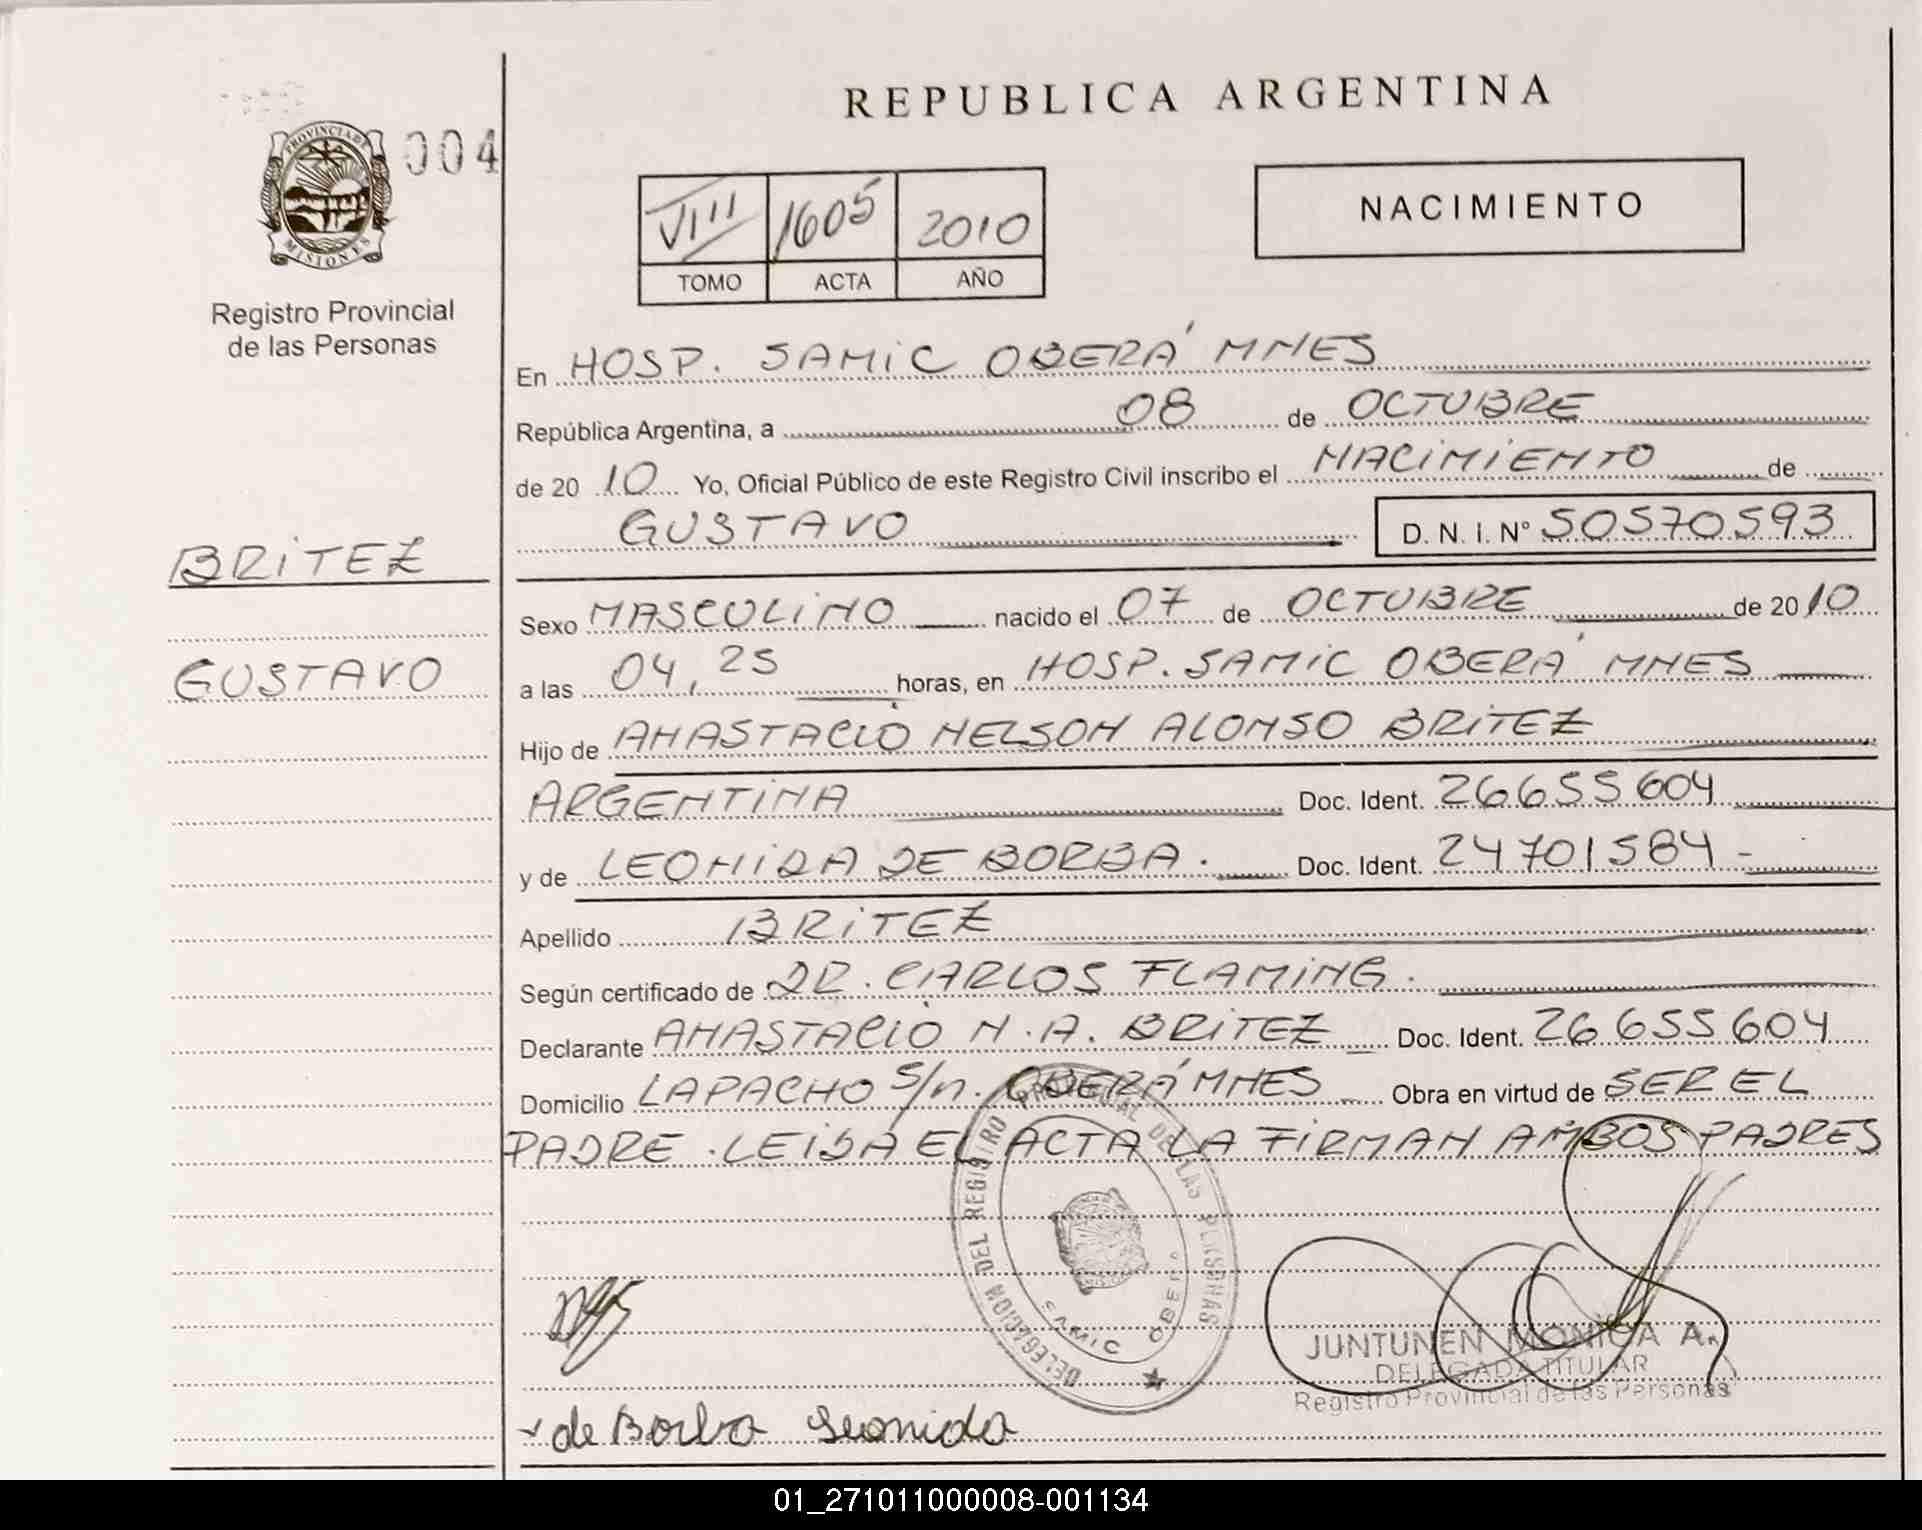 REPUBLICA ARGENTINA
PROVINCIA DE
MISIONES
004
Registro Provincial
de las Personas
VIII 1605 2010
TOMO ACTA AÑO
NACIMIENTO
En HOSP. SAMIC OBERÁ MNES
República Argentina, a 08 de OCTUBRE
de 20 10 Yo, Oficial Público de este Registro Civil inscribo el NACIMIENTO de
GUSTAVO D. N. I. Nº 50570593
BRITEZ
Sexo MASCULINO nacido el 07 de OCTUBRE de 20 10
GUSTAVO
a las 04,25 horas, en HOSP. SAMIC OBERÁ MNES
Hijo de ANASTACIO NELSON ALONSO BRITEZ
ARGENTINA Doc. Ident. 26655604
y de LEONIDA DE BORBA. Doc. Ident. 24701584-
Apellido BRITEZ
Según certificado de DR. CARLOS FLAMING.
Declarante ANASTACIO N.A. BRITEZ Doc. Ident. 26655604
Domicilio LAPACHO S/n. OBERÁ MNES Obra en virtud de SER EL
PADRE. LEIDA EL ACTA LA FIRMAN AMBOS PADRES
DELEGACION DEL REGISTRO PROVINCIAL DE LAS PERSONAS
SAMIC OBERA
JUNTUNEN MONICA A.
DELEGADA TITULAR
Registro Provincial de las Personas
de Borba Leonida
01_271011000008-001134